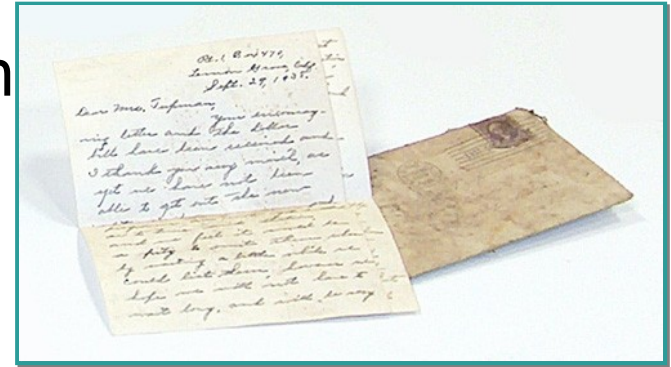 n
Rt. 1 Box 470,
Lemon Grove, Calif.
Sept. 29, 1935.
Dear Mrs. Tupman,
Your encourag-
ing letter and the dollar
bill have been received and
I thank you very much, as
yet we have not been
able to get out the new
and we feel it would be
a pity to omit them when
by waiting a little while we
could list them, however we
hope we will not have to
wait long, and will be very